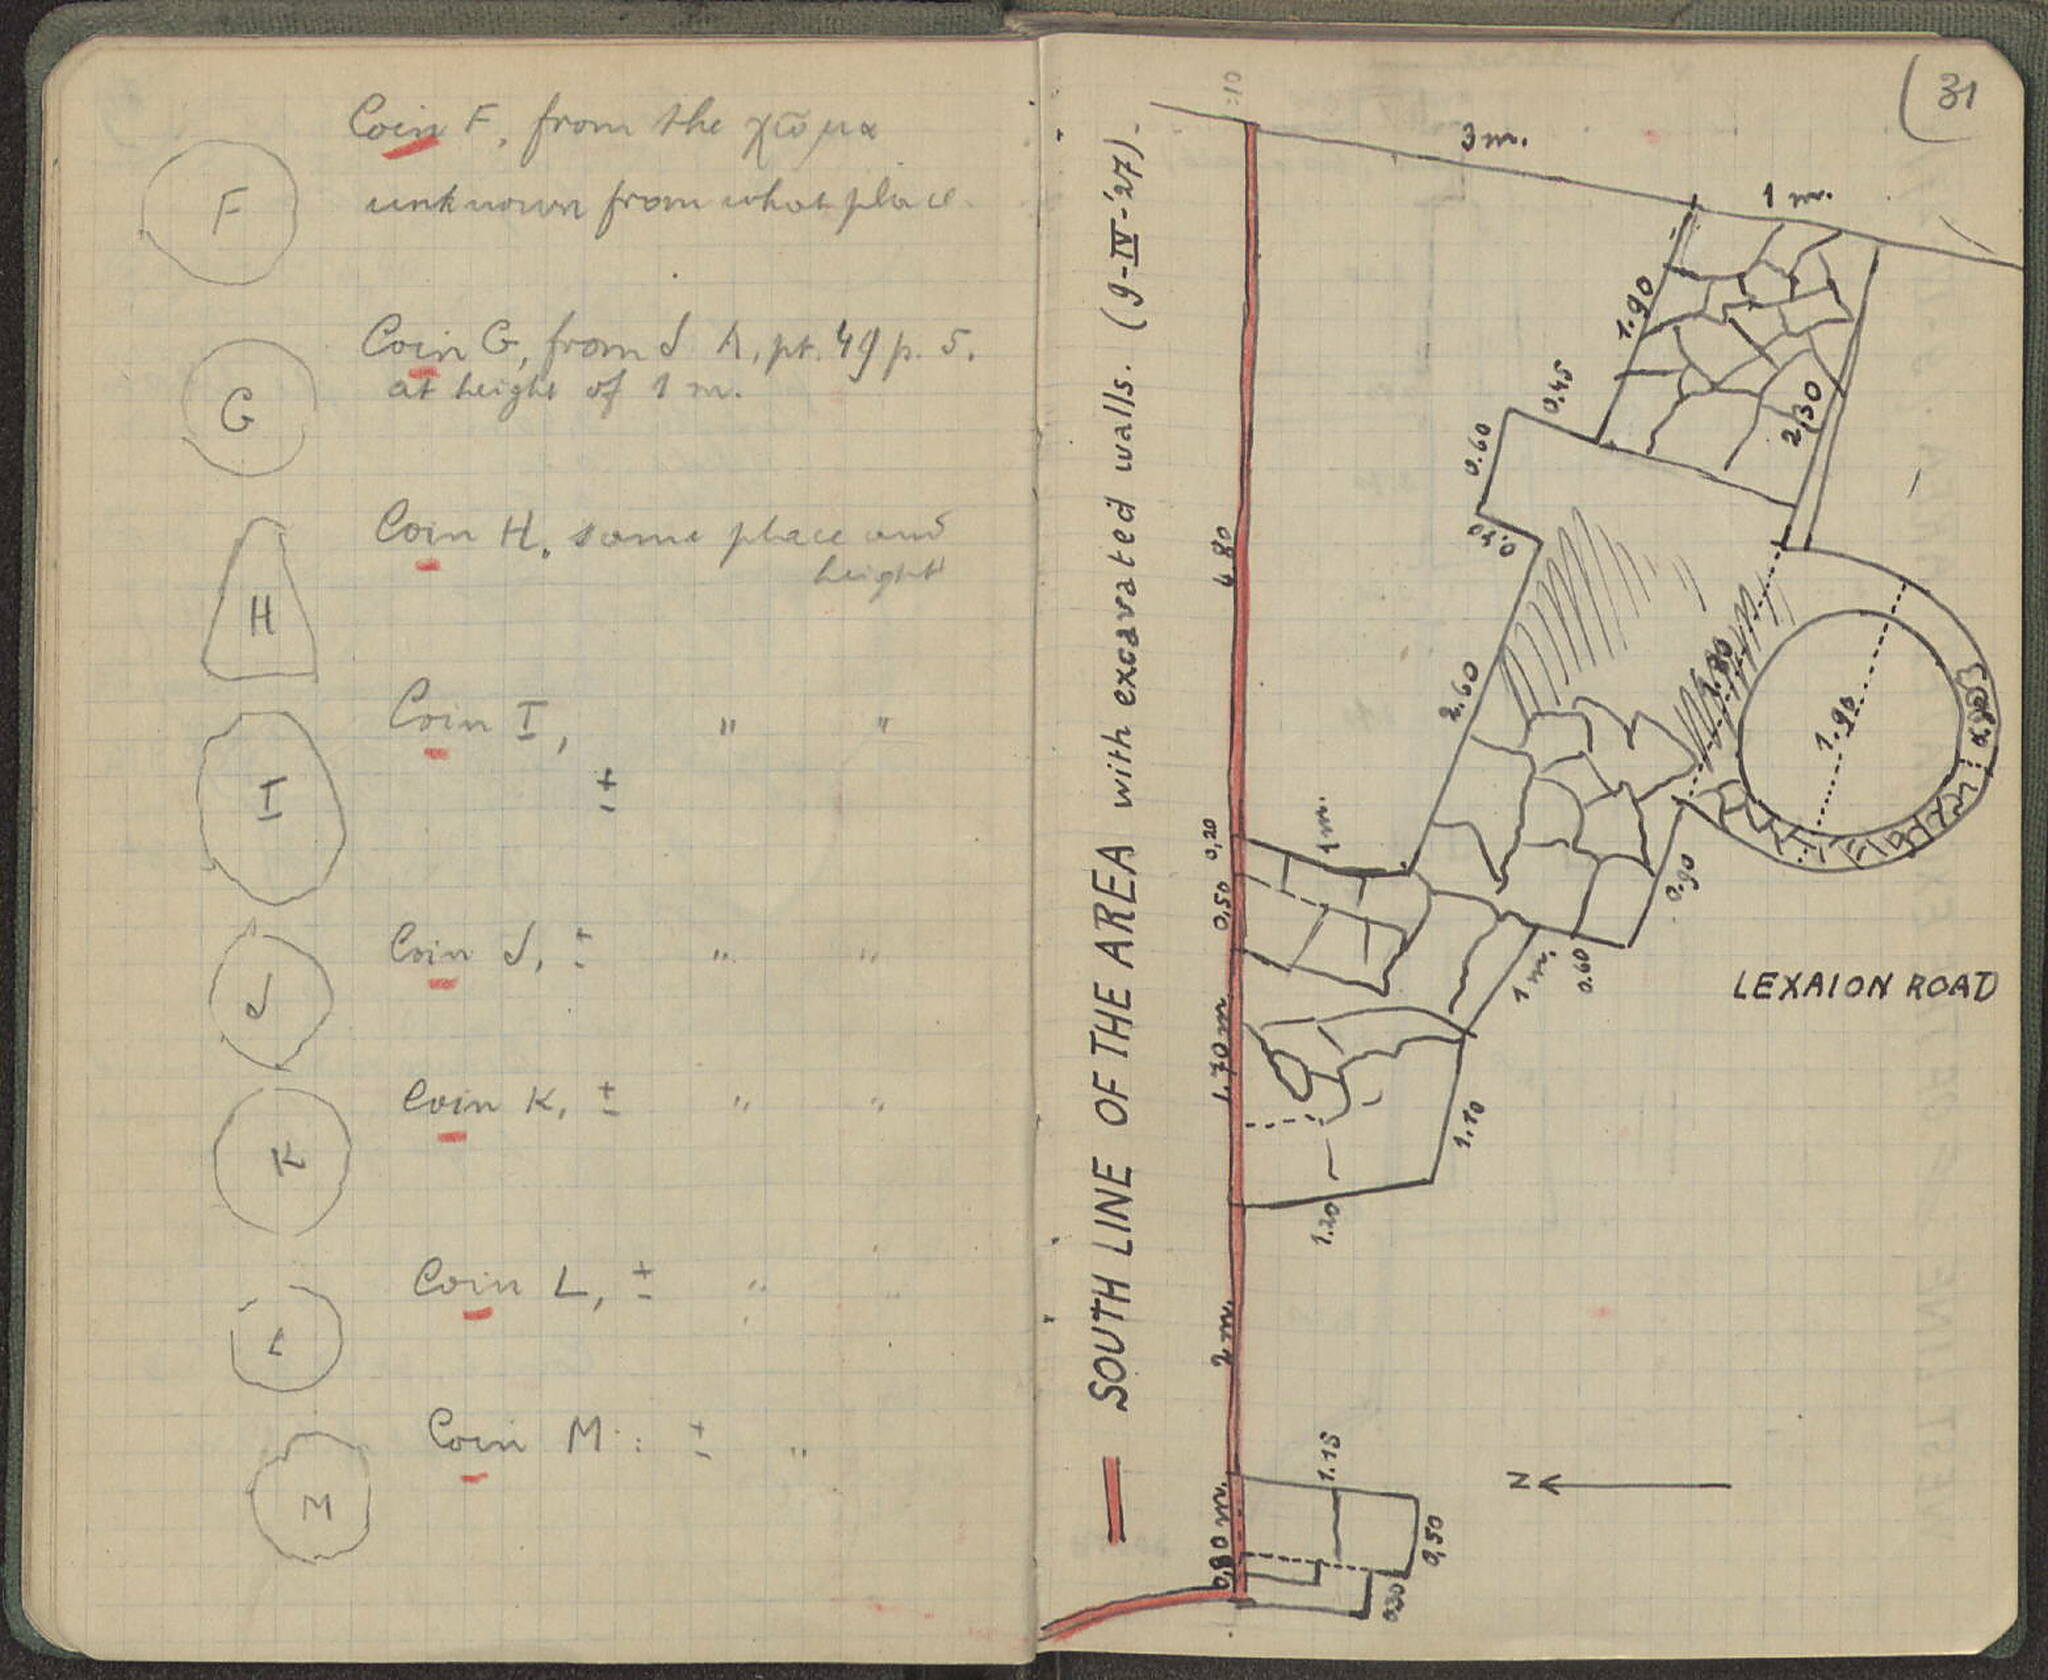 F
Coin F, from the χῶμα
unknown from what place.
G
Coin G, from J h, pt. 49 p. 5.
at height of 1 m.
H
Coin H, same place and
height
I
Coin I, " "
±
J
Coin J, ± " "
K
Coin K, ± " "
L
Coin L, ± " "
M
Coin M : ± "
31
SOUTH LINE OF THE AREA with excavated walls. (9-IV-'27).
:10
3 m.
1 m.
1.90
2,30
0.45
0.60
4 80
2.60
1.90
0,20
0,50
1 m.
0.90
0.60
1 m.
1.70 m
1.10
1.20
2 m.
1.15
0,80 m.
0,50
0.30
LEXAION ROAD
N